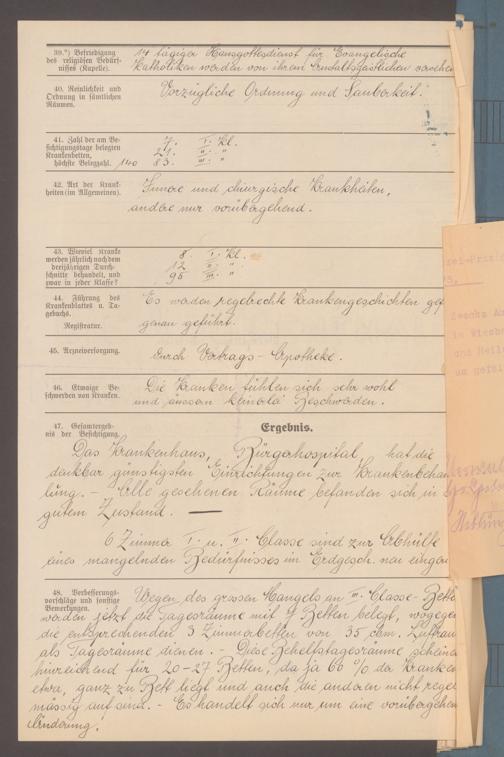 39.*) Befriedigung
des religiösen Bedürf-
nisses (Kapelle).
14 tägiger Hausgottesdienst für Evangelische
Katholiken werden von ihrem Anstaltsgeistlichen versehen
40. Reinlichkeit und
Ordnung in sämtlichen
Räumen.
Vorzügliche Ordnung und Sauberkeit.
41. Zahl der am Be-
sichtigungstage belegten
Krankenbetten,
höchste Belegzahl. 140
7. I. Kl.
21. II. "
83. III. "
42. Art der Krank-
heiten (im Allgemeinen).
Innere und chirurgische Krankheiten,
andere nur vorübergehend.
43. Wieviel Kranke
werden jährlich nach dem
dreijährigen Durch-
schnitte behandelt, und
zwar in jeder Klasse?
8. I. Kl.
12 II. "
95 III. "
44. Führung des
Krankenblattes u. Ta-
gebuchs.
Registratur.
Es werden regelrechte Krankengeschichten
genau geführt.
45. Arzneiversorgung.
durch Vertrags-Apotheke.
46. Etwaige Be-
schwerden von Kranken.
Die Kranken fühlten sich sehr wohl
und äussern keinerlei Beschwerden.
47. Gesamtergeb-
nis der Besichtigung.
Ergebnis.
Das Krankenhaus, Bürgerhospital, hat die
denkbar günstigsten Einrichtungen zur Krankenbehan
lung. - Alle gesehenen Räume befanden sich in
gutem Zustand. —
6 Zimmer I. u. II. Classe sind zur Abhülfe
eines mangelnden Bedürfnisses im Erdgesch. neu
48. Verbesserungs-
vorschläge und sonstige
Bemerkungen.
Wegen des grossen Mangels an III. Classe-Bette
werden jetzt die Tagesräume mit 9 Betten belegt, wogegen
die entsprechenden 3 Zimmerbetten von 35 cbm.
als Tagesräume dienen. - Diese Behelfstagesräume scheinen
hinreichend für 20-27 Betten, da ja 60 % der Kranken
etwa, ganz zu Bett liegt und auch die anderen nicht regel
mässig auf sind. - Es handelt sich nur um eine vorübergehen
Änderung.